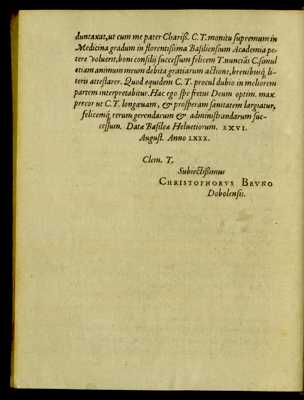 duntaxat, ut cum me pater Chariß. C. T. monitu supremum in
Medicina gradum in florentissima Basiliensium Academia pe-
tere voluerit, boni consilij successum felicem T. nunciās C. simul
etiam animum meum debita gratiarum actione, breuibusq́; li-
teris attestarer. Quod equidem C. T. procul dubio in meliorem
partem interpretabitur. Hac ego spe fretus Deum optim. max.
precor ut C. T. longæuam, & prosperam sanitatem largiatur,
felicemq́; rerum gerendarum & administrandarum suc-
cessum. Datæ Basileæ Helvetiorum. XXVI.
August. Anno LXXX.
Clem. T.
Subiectißimus
CHRISTOPHORVS BRVNO
Dobolensis.